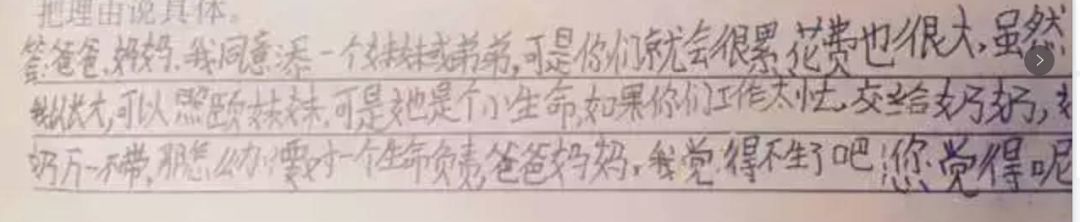 把理由说具体。
答:爸爸、妈妈、我同意添一个妹妹或弟弟,可是你们就会很累,花费也很大,虽然
我以长大,可以照顾妹妹,可是她是个小生命,如果你们工作太忙,交给奶奶,
奶万一不带,那怎么办?要对一个生命负责,爸爸妈妈,我觉得不生了吧!您觉得呢